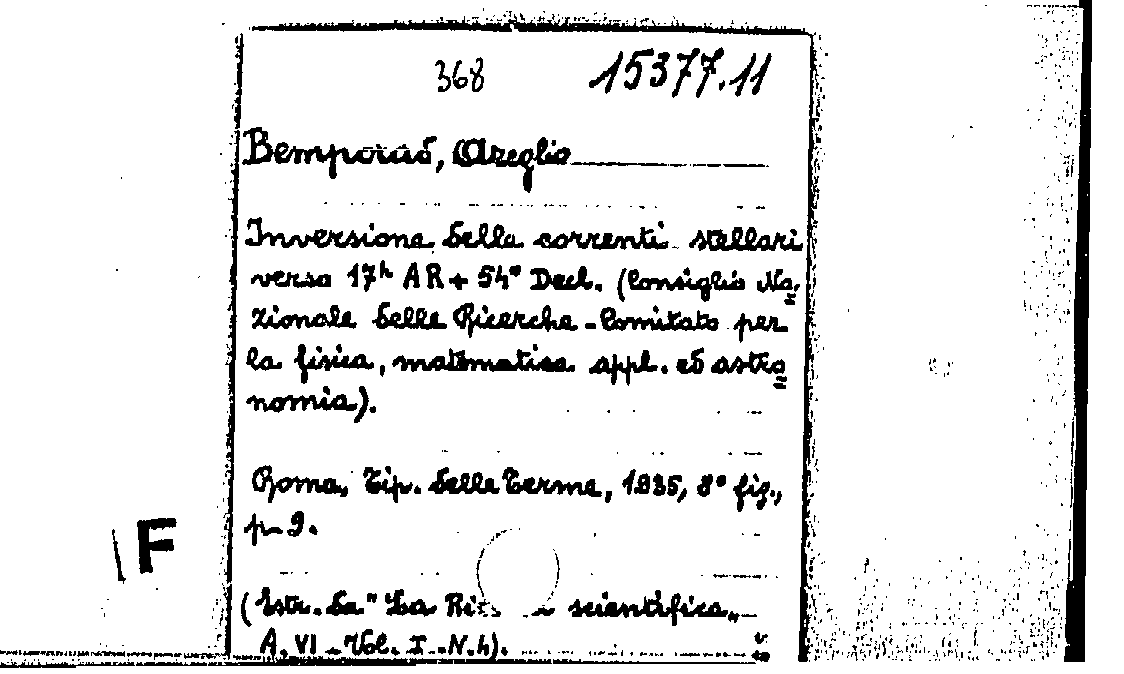 368 15377.11
Bemporad, Azeglio
Inversione delle correnti stellari
verso 17ʰ AR + 54° Decl. (Consiglio Na=
zionale delle Ricerche - Comitato per
la fisica, matematica appl. ed astro=
nomia).
Roma, Tip. delle Terme, 1935, 8° fig.,
p. 9.
F
(Estr. da "La Ric e scientifica„
A. VI - Vol. I - N. 4).